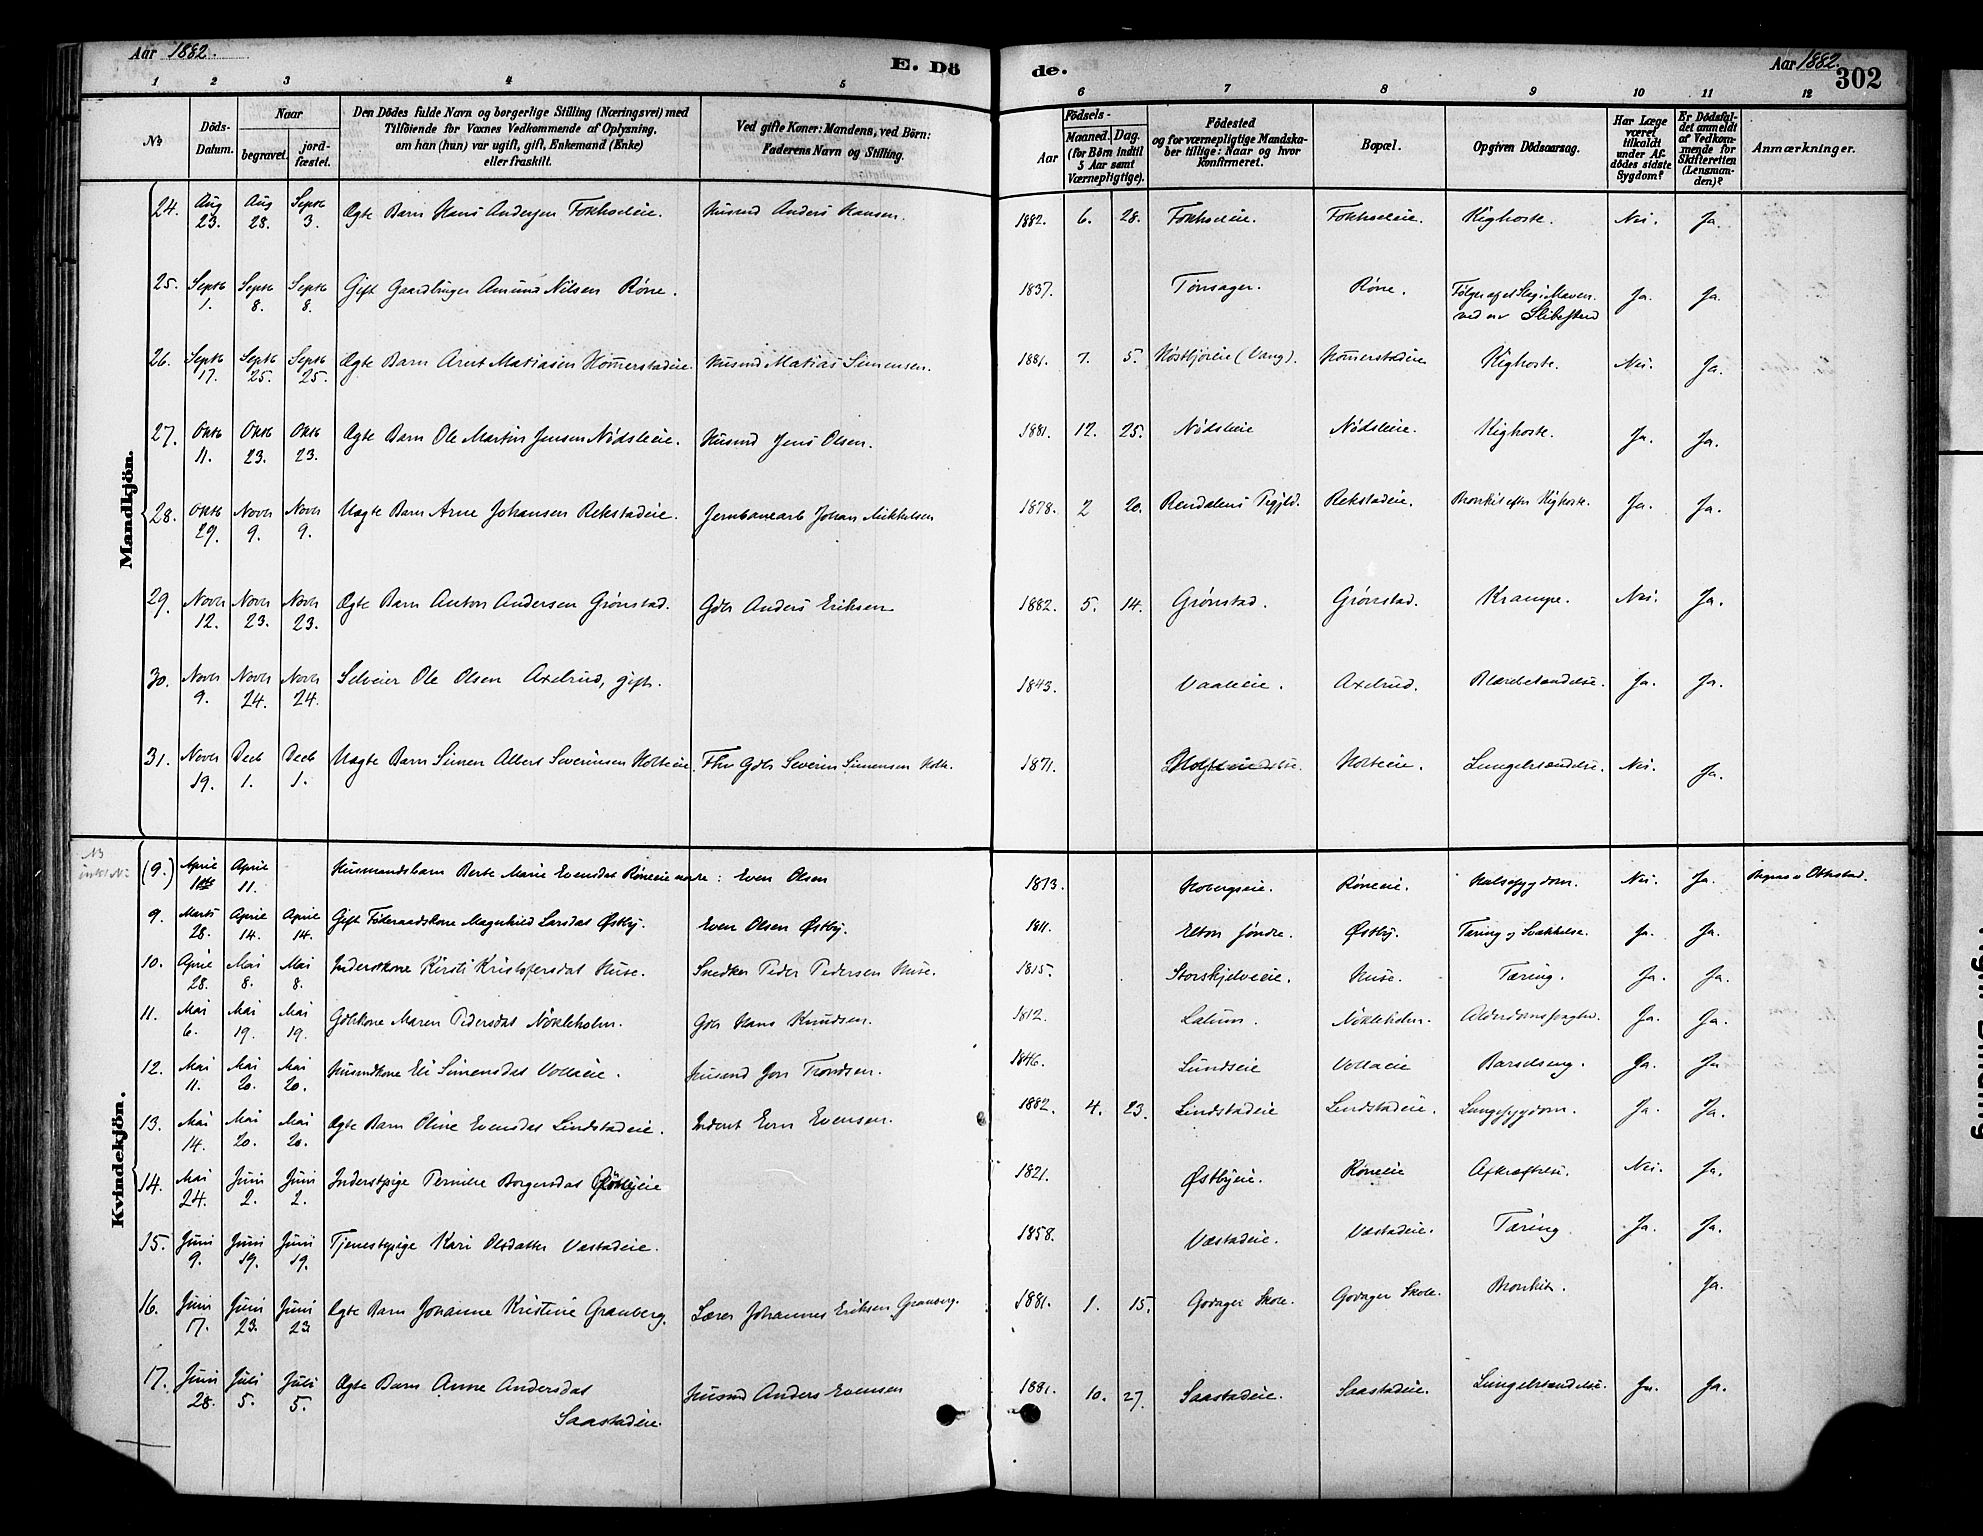 Aar 1882.
E. Dö
de.
Aar 1882.
302
1 2 3 4 5 6 7 8 9 10 11 12
No
Döds-Datum.
Naar
begravet.
jordfæstet.
Den Dödes fulde Navn og borgerlige Stilling (Næringsvei) med
Tilföiende for Voxnes Vedkommende af Oplysning,
om han (hun) var ugift, gift, Enkemand (Enke)
eller fraskilt.
Ved gifte Koner: Mandens, ved Börn:
Faderens Navn og Stilling.
Födsels-
Aar
Maaned. Dag.
(for Børn indtil
5 Aar samt
Værnepligtige).
Födested
og for værnepligtige Mandska-
ber tillige: Naar og hvor
konfirmeret.
Bopæl.
Opgiven Dödsaarsag.
Har Læge
været
tilkaldt
under Af-
dödes sidste
Sygdom?
Er Dödsfal-
det anmeldt
af Vedkom-
mende for
Skifteretten
(Lensman-
den)?
Anmærkninger.
Mandkjön.
24. Aug 23. Aug 28. Septb 3. Ægte Barn Hans Andersen Fokholeie. Husmd Anders Hansen. 1882. 6. 28. Fokholeie. Fokholeie. Kighoste. Nei. Ja.
25. Septb 1. Septb 8. Septb 8. Gift Gaardbruger Amund Nilsen Røne. 1837. Tønsager. Røne. Følger af et Slag i Maven Ja. Ja.
26. Septb 17. Septb 25. Septb 25. Ægte Barn Arnt Matiasen Hommerstadeie. Husmd Matias Simensen. 1881. 7. 5. (Vang). Hommerstadeie Kighoste. Nei. Ja.
27. Oktb 11. Oktb 23. Oktb 23. Ægte Barn Ole Martin Jensen Nødsleie. Husmd Jens Olsen. 1881. 12. 25. Nødsleie Nødsleie. Kighoste. Ja. Ja.
28. Oktb 29. Novbr 9. Novbr 9. Uægte Barn Arne Johansen Rekstadeie. Jernbanearb Johan Mikkelsen 1878. 2 20. Rendalens Pgjld. Rekstadeie. Bronkit efter Kighoste. Ja. Ja.
29. Novbr 12. Novbr 23. Novbr 23. Ægte Barn Anton Andersen Grønstad. Gdbr Anders Eriksen 1882. 5. 14. Grønstad. Grønstad. Krampe. Nei. Ja.
30. Novbr 9. Novbr 24. Novbr 24. Selveier Ole Olsen Axelrud, gift. 1843. Vaaleie. Axelrud. Blærebetændelse. Ja. Ja.
31. Novbr 19. Decb 1. Decb 1. Uægte Barn Simen Albert Severinsen Holteie. Fhv Gdbr Severin Simensen Holte. 1871. Holteie. Lungebetændelse. Nei. Ja.
Kvindekjön.
(9.) April April 11. Husmandsbarn Berte Marie Evensdat Røneie nordre: Even Olsen 1873. Hovergseie. Røneie. Halssygdom. Nei. Ja. Ottestad.
9. Marts 28. April 14. April 14. Gift Føderaadskone Magnhild Larsdat Østby. Even Olsen Østby. 1811. Elton søndre. Østby. Tæring og Svækkelse. Ja. Ja.
10. April 28. Mai 8. Mai 8. Inderstkone Kirsti Kristofersdat Huse. Snedker Peder Pedersen Huse. 1815. Storskjelveeie. Huse. Tæring. Ja. Ja.
11. Mai 6. Mai 19. Mai 19. Gdbkone Maren Pedersdat Nøkleholm. Gdbr Hans Knudsen. 1812. Lalum. Nøkleholm. Alderdomssvaghed. Ja. Ja.
12. Mai 11. Mai 20. Mai 20. Husmdkone Eli Simensdat Vollaeie. Husmd Jon Trondsen. 1846. Lundseie Vollaeie Barselseng. Ja. Ja
13. Mai 14. Mai 20. Mai 20. Ægte Barn Oline Evensdat Lindstadeie. Inderst Even Evensen. 1882. 4. 23. Lindstadeie Lindstadeie. Lungesygdom. Ja. Ja.
14. Mai 24. Juni 2. Juni 2. Inderstpige Pernille Borgersdat 1821. Østbyeie. Røneie Afkræftelse. Nei. Ja.
15. Juni 9. Juni 19. Juni 19. Tjenestepige Kari Olsdatter Væstadeie. 1858. Væstadeie. Væstadeie. Tæring. Ja. Ja.
16. Juni 17. Juni 23. Juni 23 Ægte Barn Johanne Kristine Granberg. Lærer Johannes Eriksen Granberg. 1881. 1. 15. Godager Skole. Godager Skole. Bronkit. Ja.
17. Juni 28. Juli 5. Juli 5. Ægte Barn Anne Andersdat Husmd Anders Evensen 1881. 10. 27. Saastadeie. Saastadeie. Lungebetændelse. Ja. Ja.
Saastadeie.